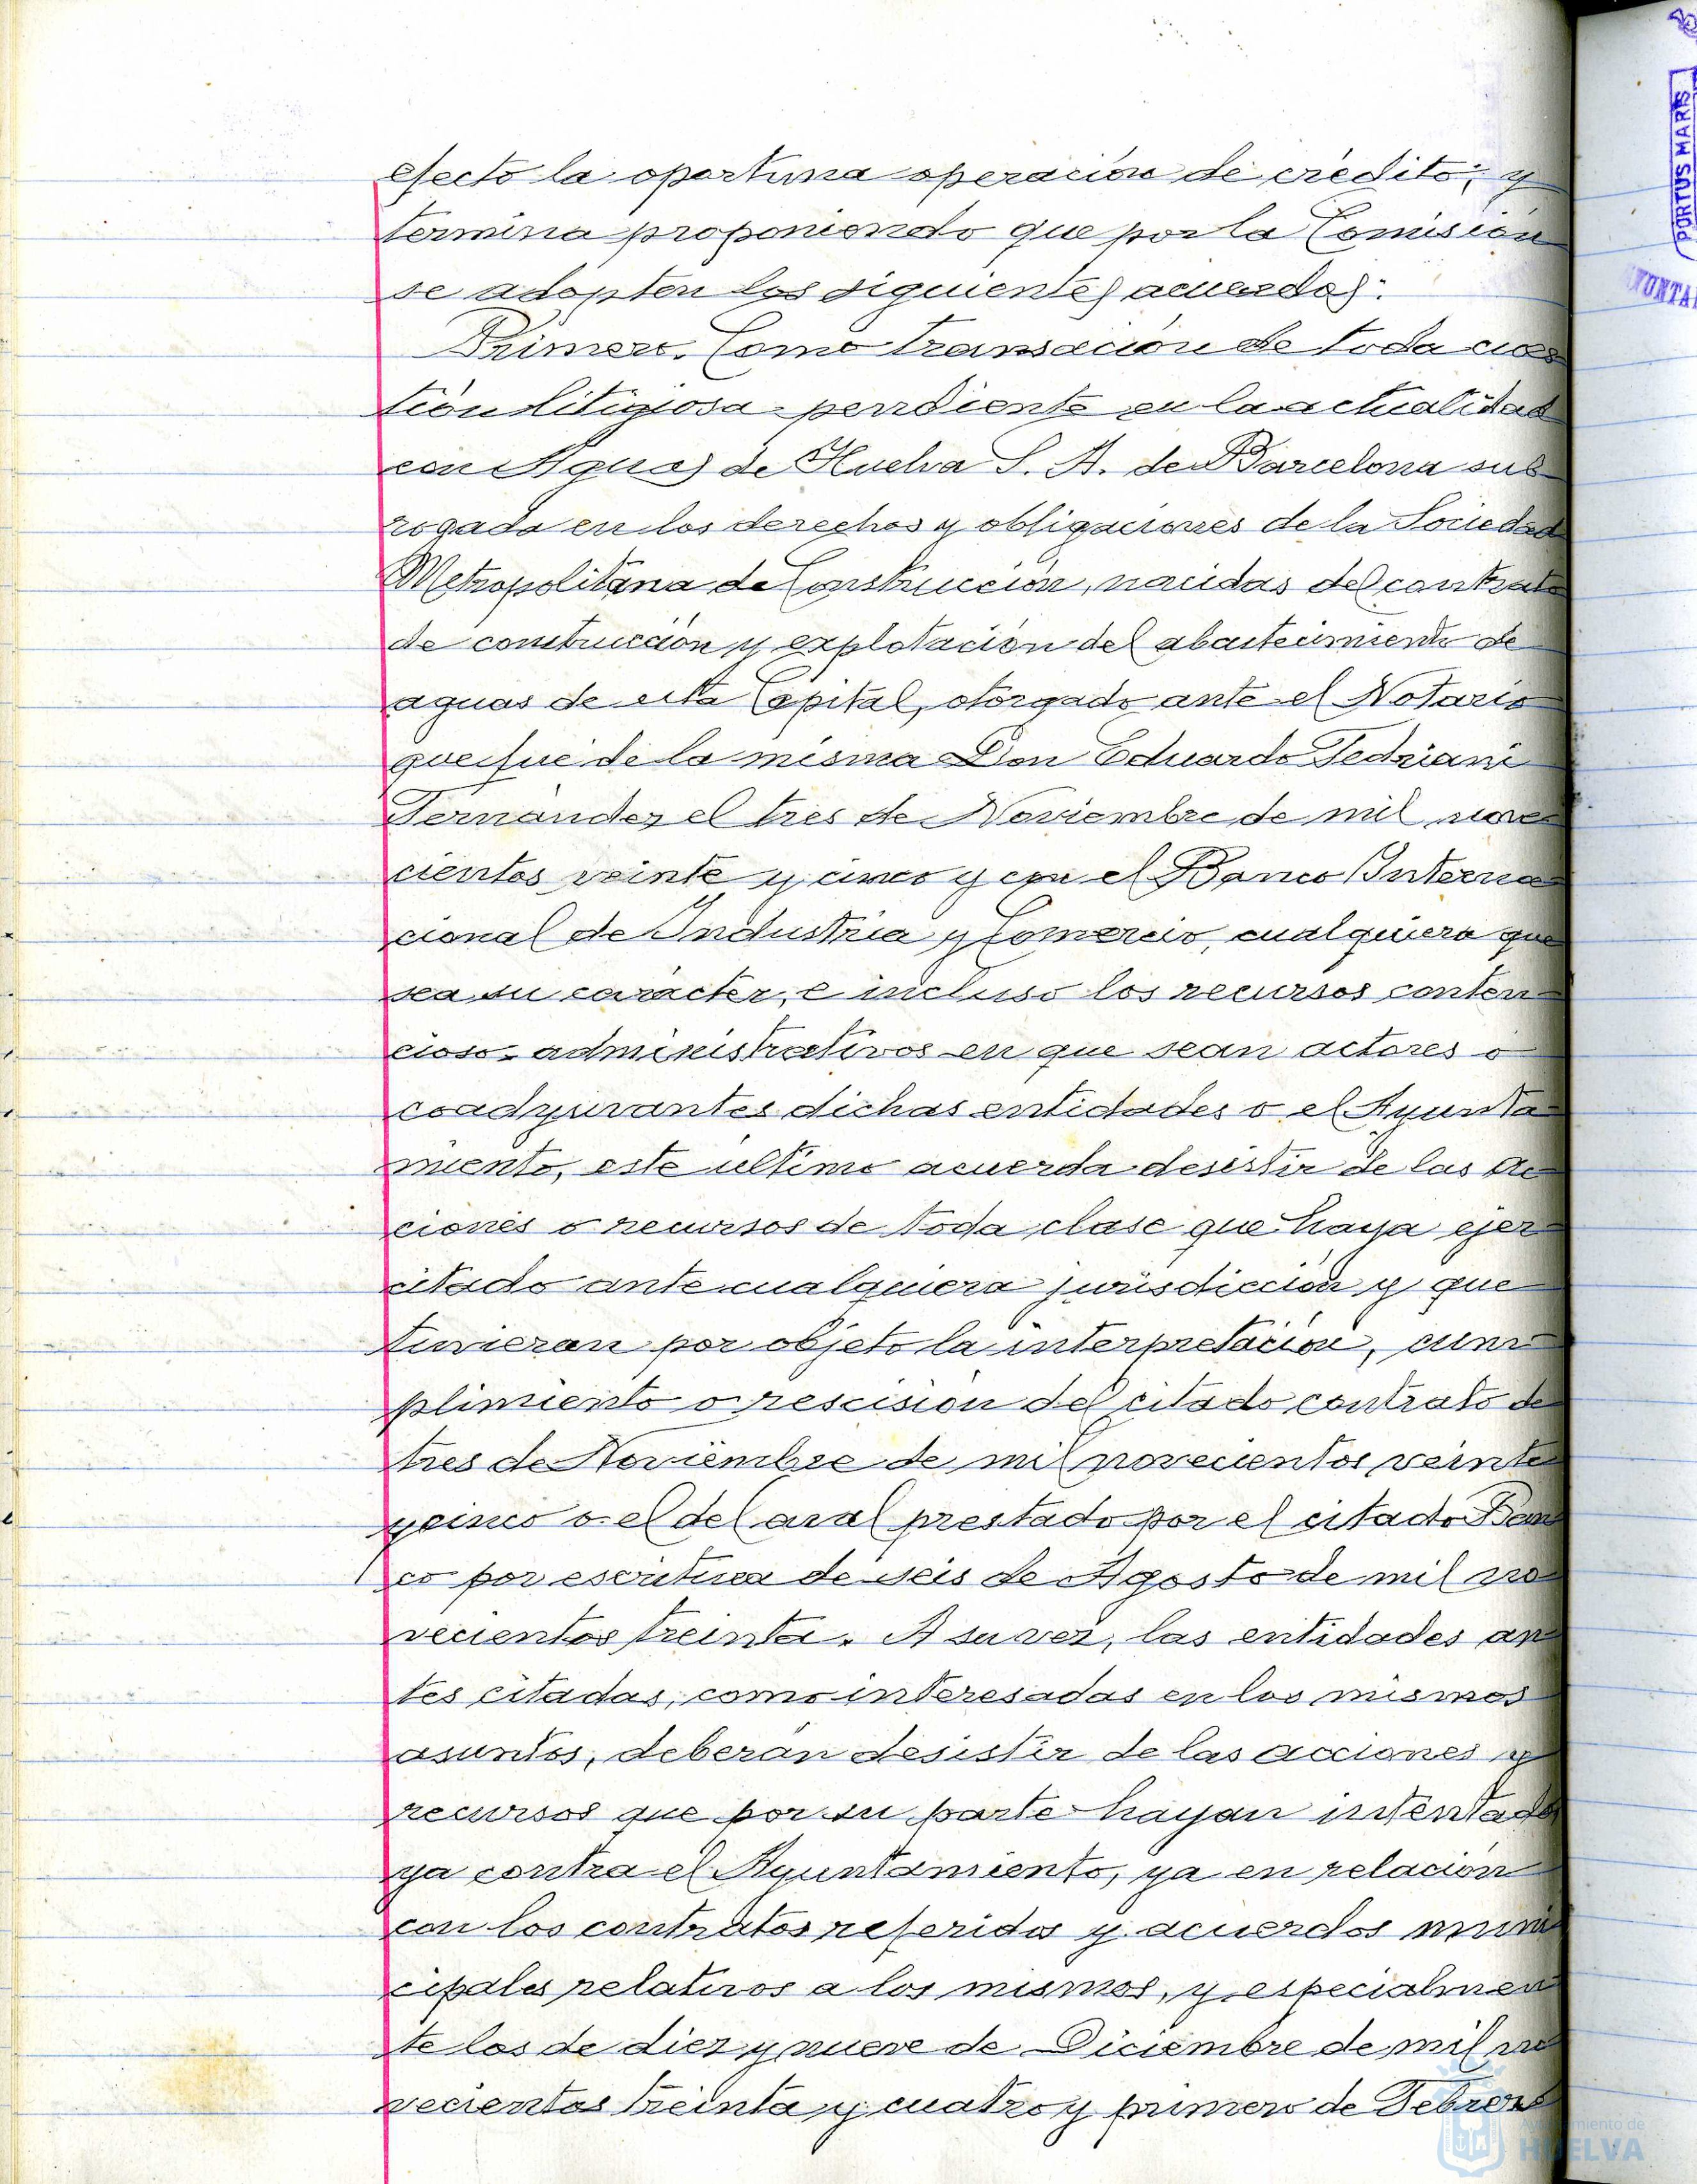 efecto la oportuna operación de crédito; y
termina proponiendo que por la Comisión
se adopten los siguientes acuerdos:
Primero. Como transación de toda cues
tión litigiosa pendiente en la actualidad
con Aguas de Huelva S. A. de Barcelona sub
rogada en los derechos y obligaciones de la Sociedad
Metropolitana de Construcción, nacidas del contrato
de construcción y explotación del abastecimiento de
aguas de esta Capital, otorgado ante el Notario
que fué de la misma Don Eduardo Fedriani
Fernández el tres de Noviembre de mil nove
cientos veinte y cinco y con el Banco Interna
cional de Industria y Comercio, cualquiera que
sea su carácter, e incluso los recursos conten
cioso-administrativos en que sean actores o
coadyuvantes dichas entidades o el Ayunta
miento, este último acuerda desistir de las ac
ciones o recursos de toda clase que haya ejer
citado ante cualquiera jurisdicción y que
tuvieran por objeto la interpretación, cum
plimiento o rescisión del citado contrato de
tres de Noviembre de mil novecientos veinte
y cinco o el del aval prestado por el citado Ban
co por escritura de seis de Agosto de mil no
vecientos treinta. A su vez, las entidades an
tes citadas, como interesadas en los mismos
asuntos, deberán desistir de las acciones y
recursos que por su parte hayan intentado
ya contra el Ayuntamiento, ya en relación
con los contratos referidos y acuerdos muni
cipales relativos a los mismos, y especialmen
te los de diez y nueve de Diciembre de mil no
vecientos treinta y cuatro y primero de Febrero
PORTUS MARIS
Ayuntamiento de
HUELVA